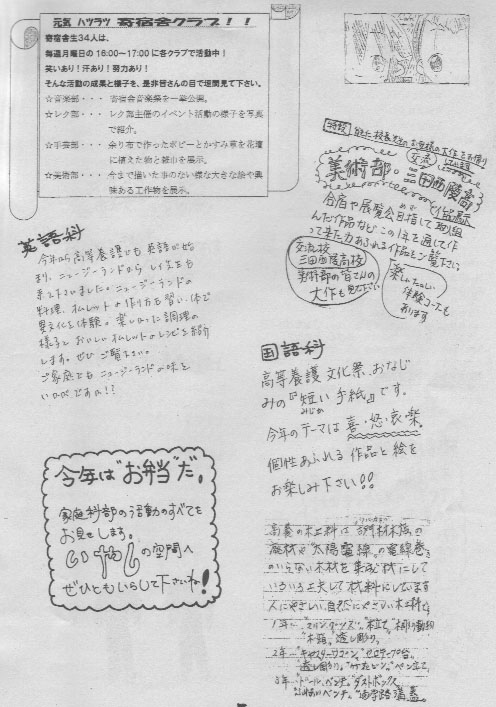 元気 ハツラツ 寄宿舎クラブ！！
寄宿舎生34人は、
毎週月曜日の 16:00〜17:00 に各クラブで活動中！
笑いあり！汗あり！努力あり！
そんな活動の成果と様子を、是非皆さんの目で垣間見て下さい。
☆音楽部・・・ 寄宿舎音楽祭を一挙公開。
☆レク部・・・ レク部主催のイベント活動の様子を写真
で紹介。
☆手芸部・・・ 余り布で作ったポピーとかすみ草を花壇
に植えた物と雑巾を展示。
☆美術部・・・ 今まで描いた事のない様な大きな絵や興
味ある工作物を展示。
特設
美術部。三田西陵高
交流
作品展示
合宿や展覧会目指して取組
んだ作品など この1年を通して作
って来た力あふれる作品をご覧下さい
交流校
三田西陵高校
美術部の皆さんの
大作も見て下さい
楽しい
体験コーナーも
あります
英語科
今年から高等養護でも英語が始
まり、ニュージーランドから
来て下さいました。ニュージーランドの
料理、オムレットの作り方を習い、体で
異文化を体験。楽しかった調理の
様子と おいしい オムレットのレシピを紹介
します。ぜひ ご覧下さい。
ご家庭でも ニュージーランドの味を
いかがですか!!
国語科
高等養護 文化祭、おなじ
みの『短い手紙』です。
みじか
今年のテーマは 喜・怒・哀・楽。
個性あふれる 作品と 絵を
お楽しみ 下さい!!
今年は"お弁当"だ。
家庭科部の活動のすべてを
お見せします。
いやしの空間へ
ぜひともいらして下さいね!
高養の木工科は
廃材や"太陽電線"の電線巻き
のいらない木材を集成材にして
いろいろ工夫して材料にしています
人にやさしい自然にやさしい木工科です
1年…
"木琴"透し彫り"
2年…"キャスターワゴン"
"透し彫り" ペン立て"
3年… "ダストボックス